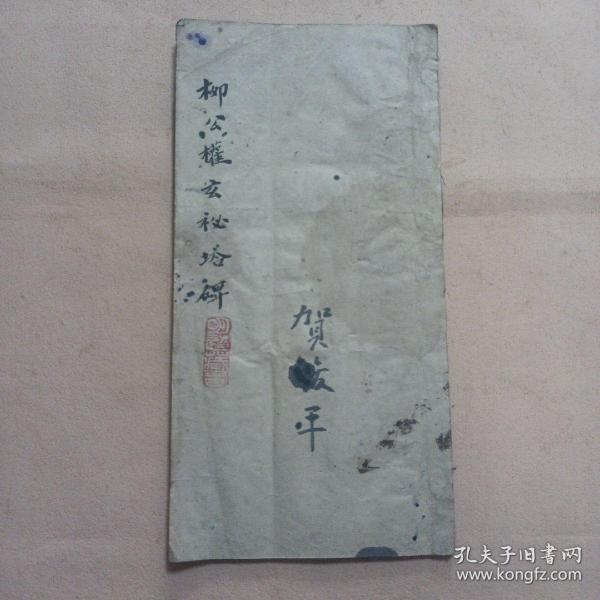 柳公權玄祕塔碑
賀
平
孔夫子旧書网
www.kongfz.com